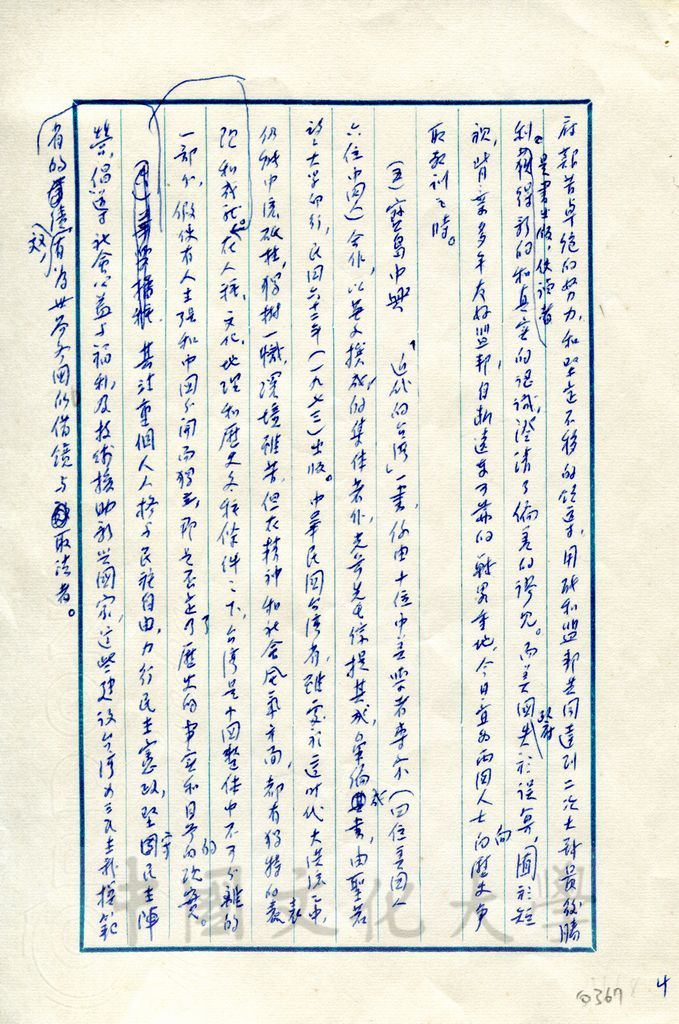 府艱苦卓絕的努力，和堅定不移的領導，用能和盟邦共同達到二次大戰最後勝
利。是書出版，使讀者獲得新的和真實的認識，澄清了偏差的謬見。而美國政府失於誤算，囿於短
視，背棄多年友好盟邦，自斷遠東可靠的戰略重地，今日宜為兩國人士向的歷史爭
取教訓之時。
(五)寶島中興 「近代的台灣」一書，係由十位中美學者專家（四位美國人
六位中國人）合作，以英文撰成的集體著作，先生綜提其成，彙編成書，由聖若
望大學印行，民國六十二年（一九七三）出版。中華民國台灣省，雖處於這時代大洪流中，
仍能中流砥柱，獨樹一幟，環境雖苦，但在精神和社會風氣方面，都有獨特的表
現和成就。在人種，文化，地理和歷史各種條件之下，台灣是中國整體中不可分離的
一部分，假使有人主張和中國分開而獨立，那是否定了歷史的事實和目今的現實。
其注重個人人格與民族自由，力行民主憲政，堅固民主陣
營，倡導社會公益與福利，及技術援助新興國家，這些建設台灣為三民主義模範
省的政績，有為世界各國所借鏡與取法者。
中國文化大學
4
369